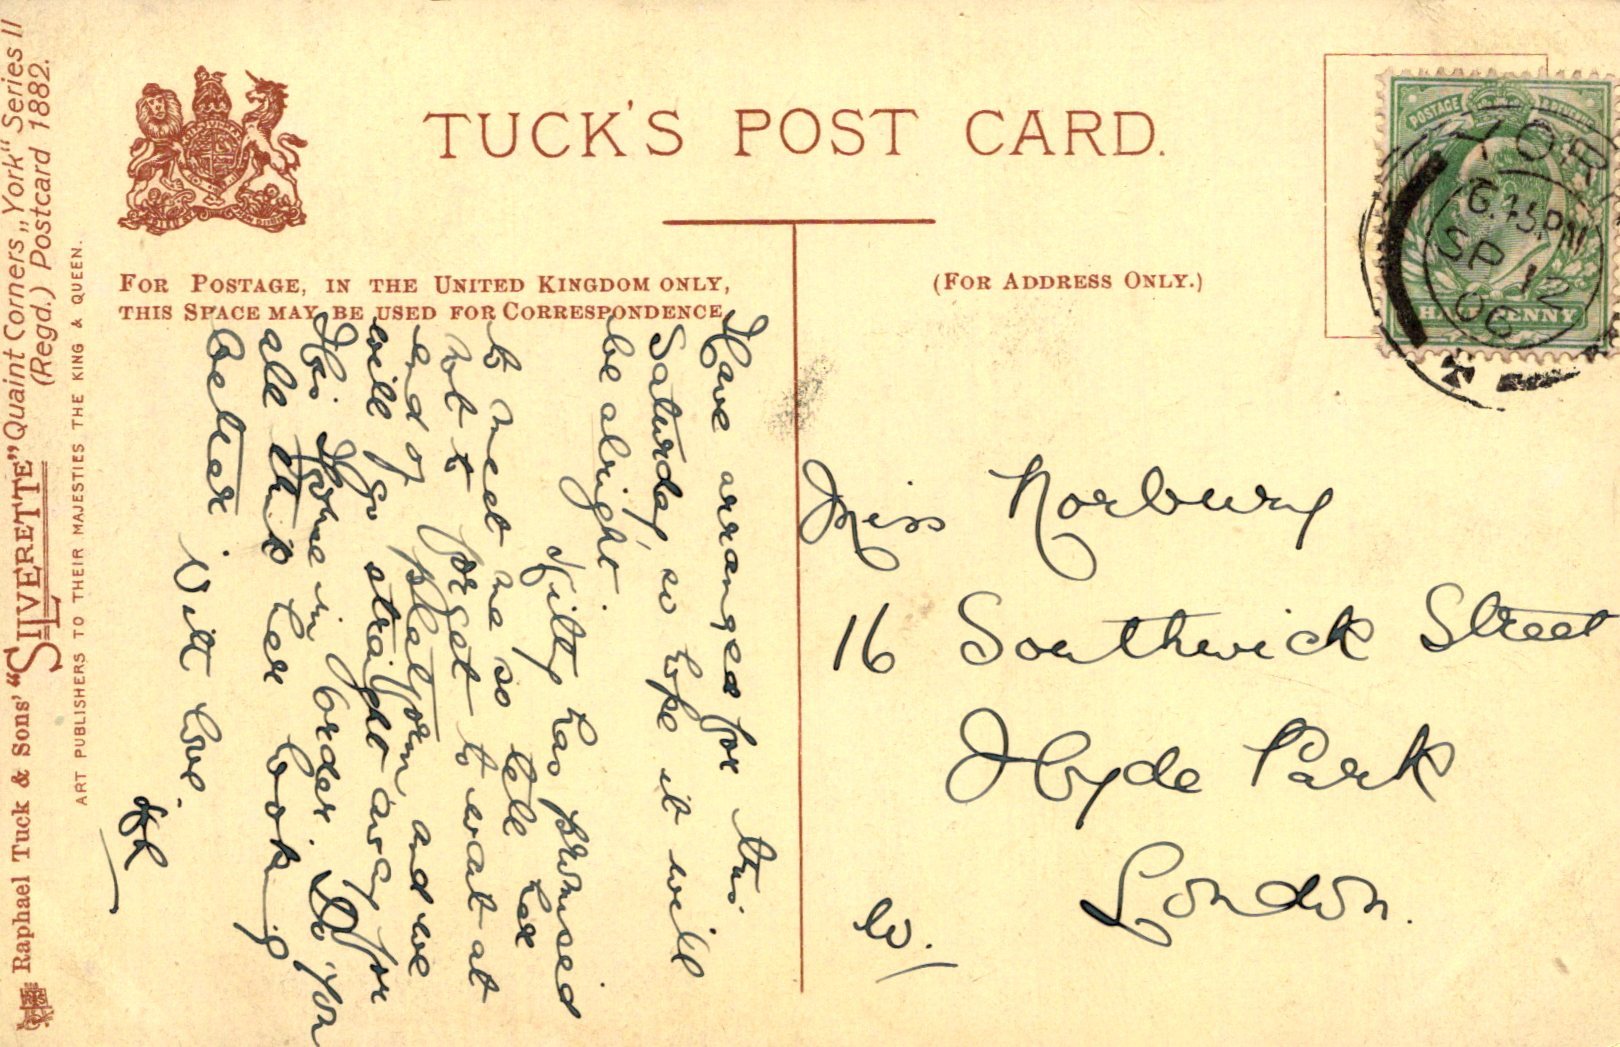 TUCK'S POST CARD.
FOR POSTAGE, IN THE UNITED KINGDOM ONLY,
THIS SPACE MAY BE USED FOR CORRESPONDENCE
(FOR ADDRESS ONLY.)
POSTAGE
HALFPENNY
YORK
6.15 PM
SP 12
06
Have arranged for this
Saturday, so hope it will
be alright
Kitty has promised
to meet me so tell her
not to forget to wait at
end of platform and we
will go straight away for
His Home in order. Do you
all think her looking
Better. With love.
Miss Norbury
16 Southwick Street
Hyde Park
London.
W.
Raphael Tuck & Sons' "SILVERETTE" Quaint Corners „York" Series II
(Regd.) Postcard 1882.
ART PUBLISHERS TO THEIR MAJESTIES THE KING & QUEEN.